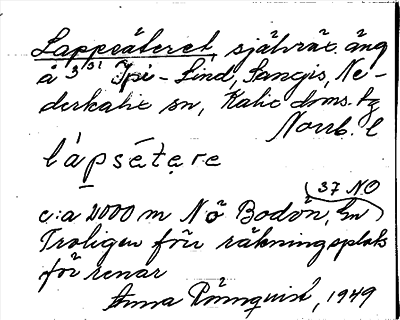 Lappsäteret, självräz. äng
å 3⁵¹ Ipi-Lind, Sangis, Ne-
derkalix sn, Kalix doms. hg
Norrb. l
lápsétẹre
37 NO
c:a 2000 m N ö Bodön, En
Troligen förr räkningsplats
för renar
Anna Rönnquist, 1949